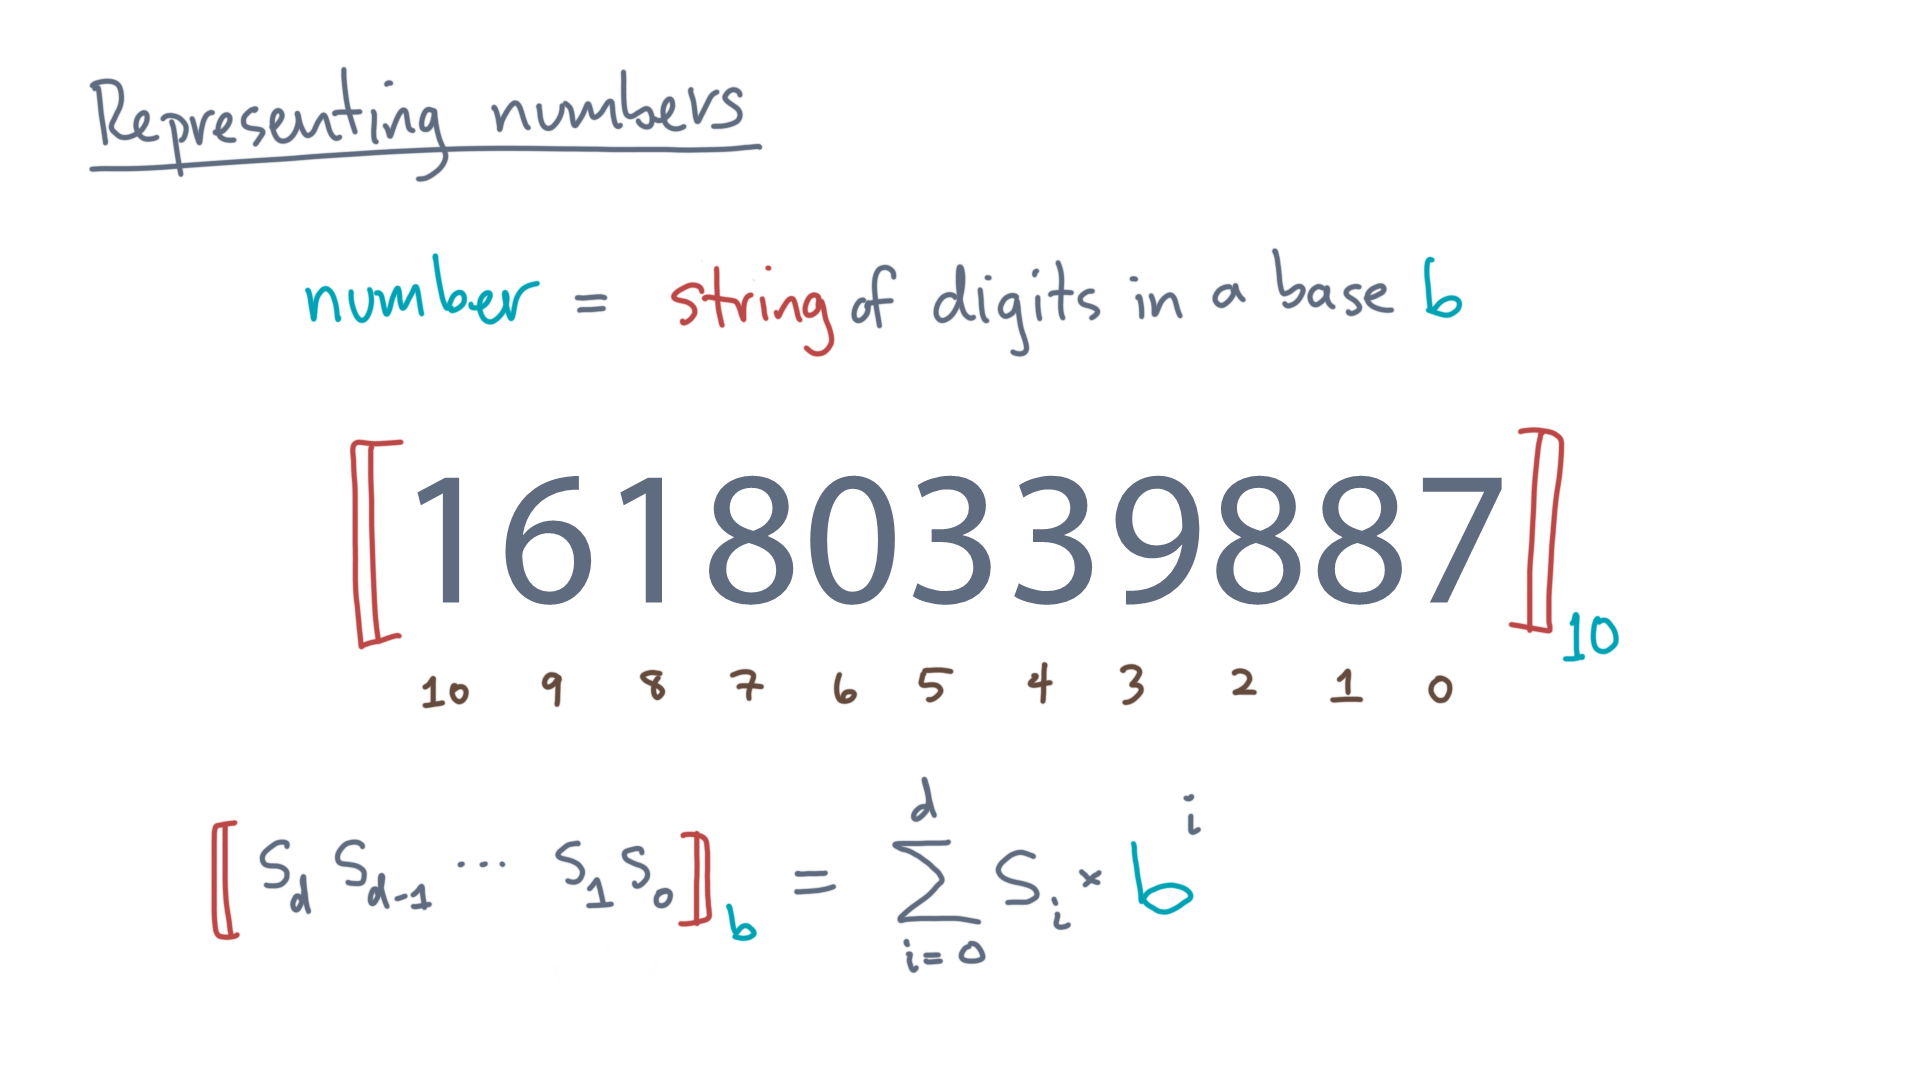 Representing numbers
number = string of digits in a base b
⟦16180339887⟧₁₀
10 9 8 7 6 5 4 3 2 1 0
⟦S_d S_{d-1} ... S_1 S_0⟧_b = ∑_{i=0}^{d} S_i × b^i